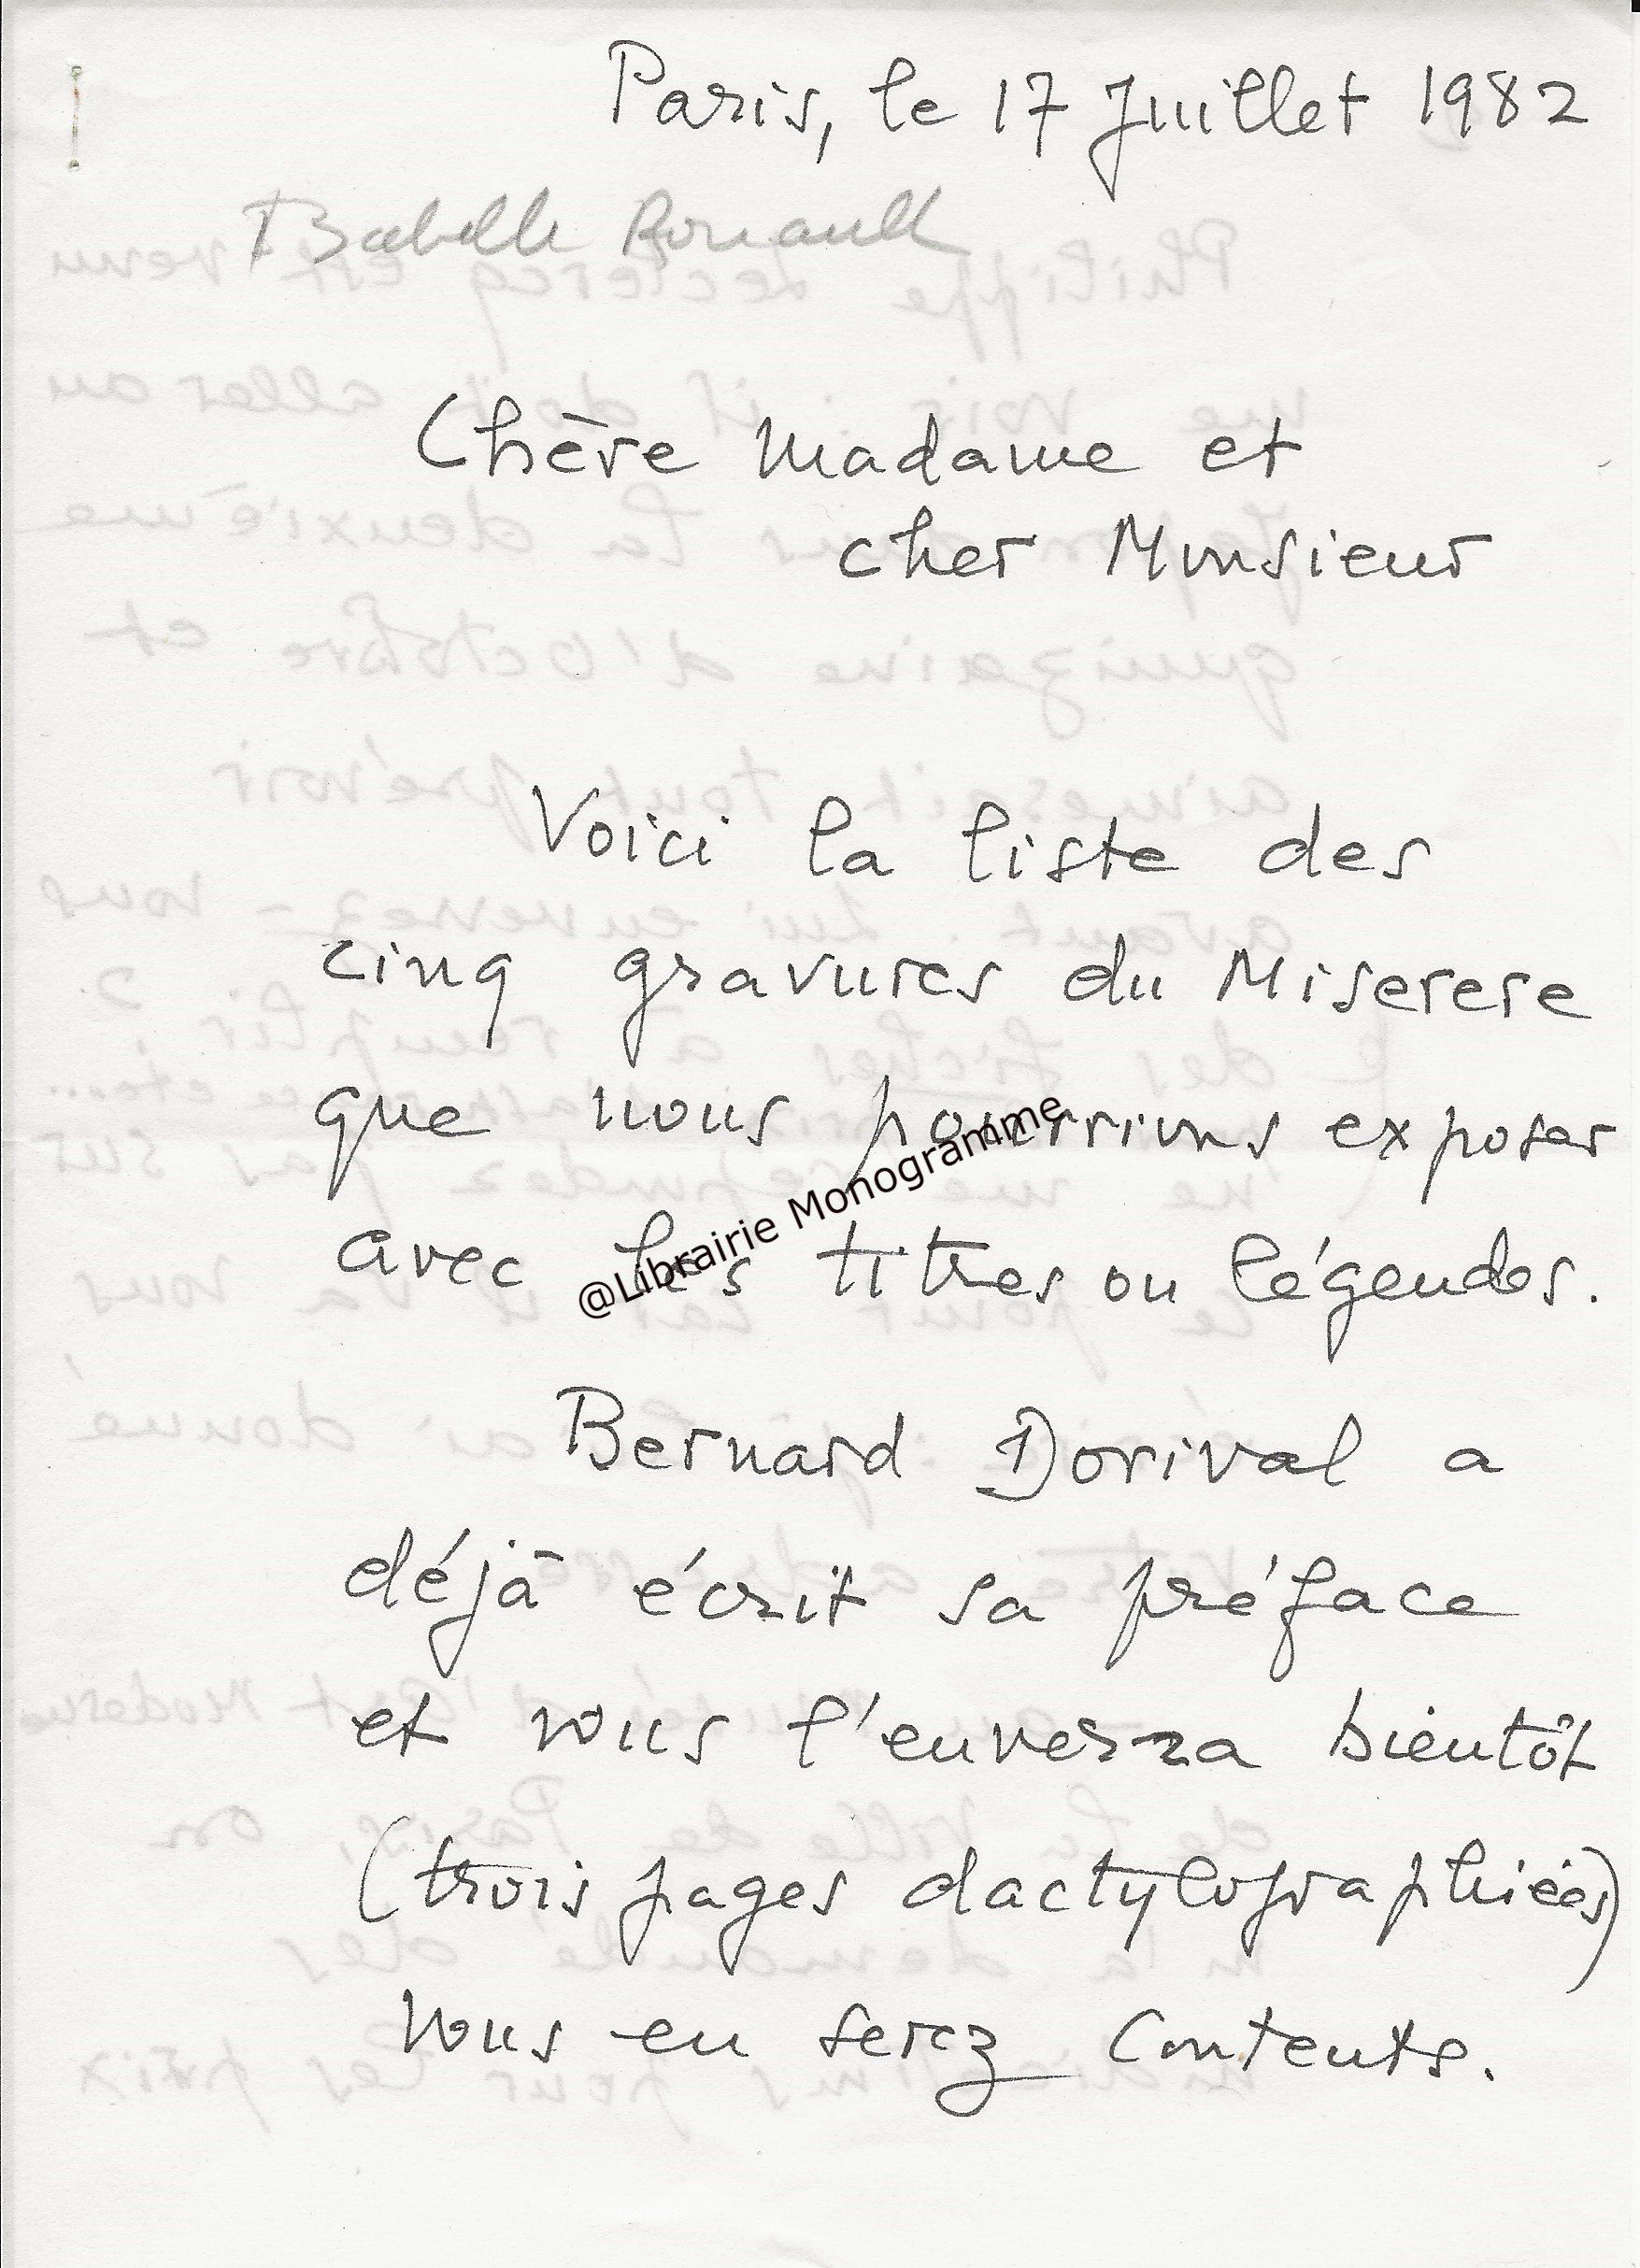 Paris, le 17 Juillet 1982
Isabelle Rouault
Chère Madame et
cher Monsieur
Voici la liste des
cinq gravures du Miserere
que nous pourrions exposer
avec les titres ou légendes.
@Librairie Monogramme
Bernard Dorival a
déjà écrit sa préface
et vous l'enverra bientôt
(trois pages dactylographiées)
Vous en serez contents.